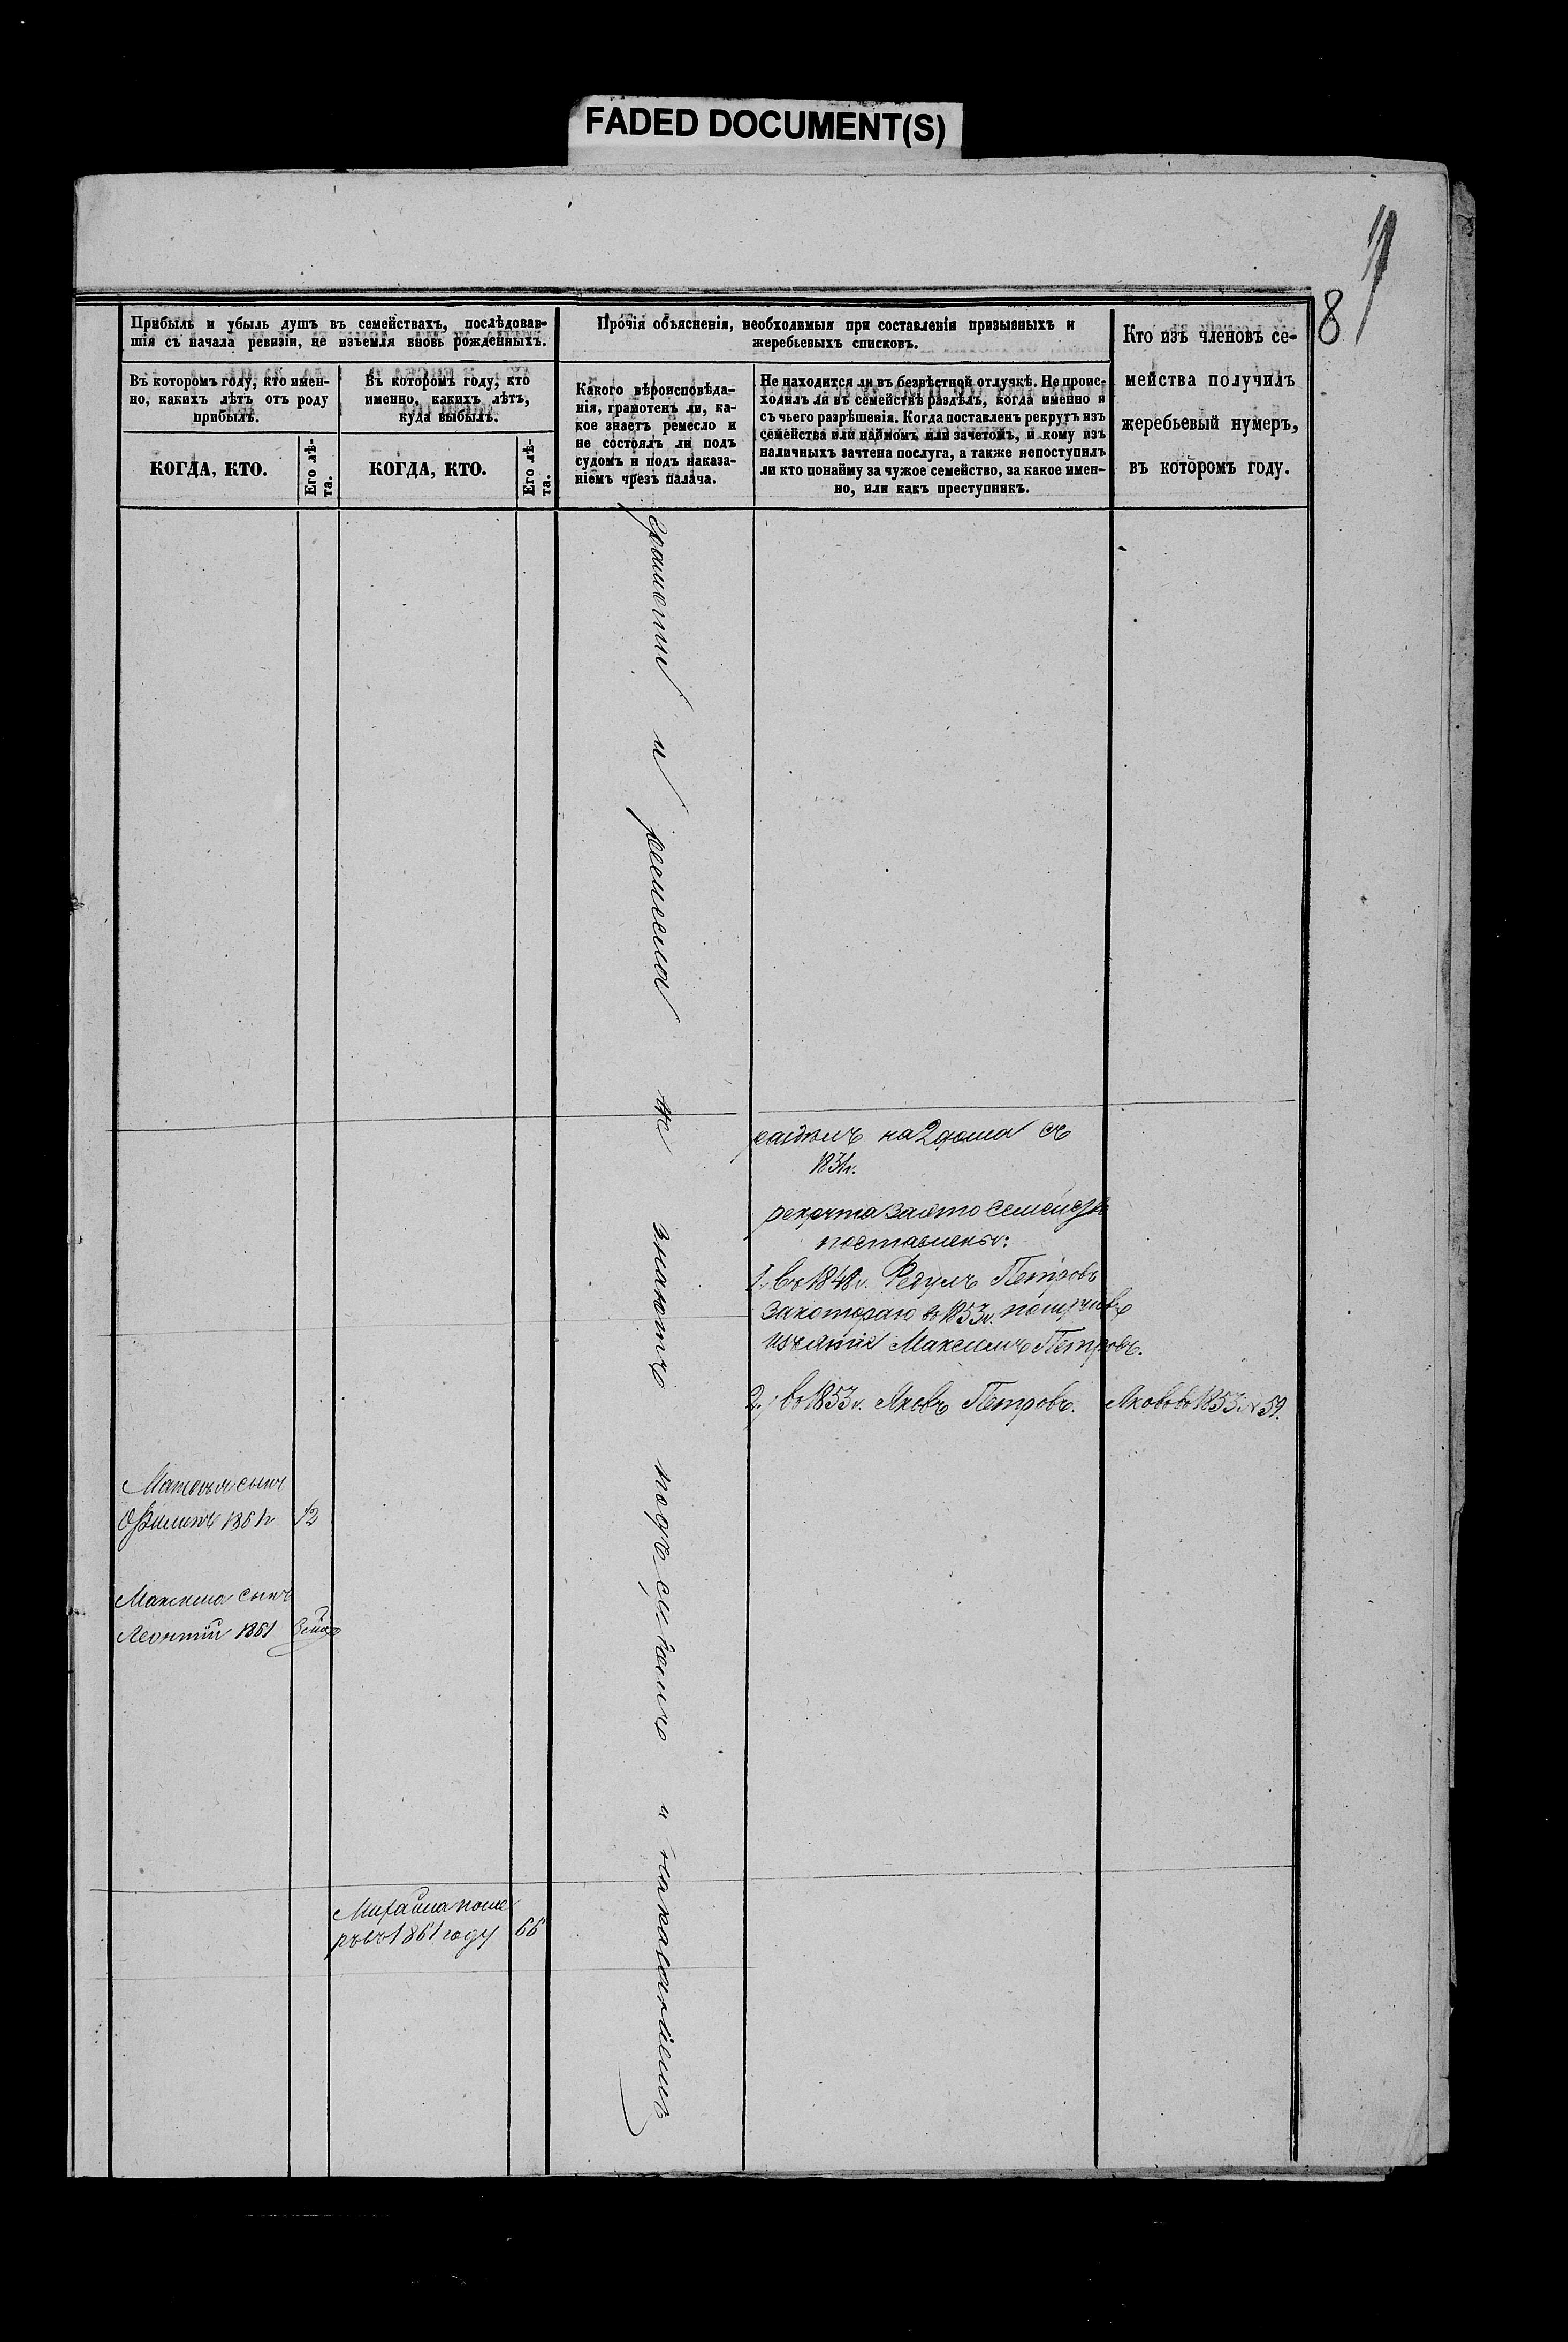 FADED DOCUMENT(S)
8
Прибыль и убыль душъ въ семействахъ, послѣдовав-
шія съ начала ревизіи, не изъемля вновь рожденныхъ.
Прочія объясненія, необходимыя при составленіи призывныхъ и
жеребьевыхъ списковъ.
Кто изъ членовъ се-
мейства получилъ
жеребьевый нумеръ,
въ которомъ году.
Въ которомъ году, кто имен-
но, какихъ лѣтъ отъ роду
прибылъ.
Въ которомъ году, кто
именно, какихъ лѣтъ,
куда выбылъ.
Какого вѣроисповѣда-
нія, грамотенъ ли, ка-
кое знаетъ ремесло и
не состоялъ ли подъ
судомъ и подъ наказа-
ніемъ чрезъ палача.
Не находится ли въ безвѣстной отлучкѣ. Не проис-
ходилъ ли въ семействѣ раздѣлъ, когда именно и
съ чьего разрѣшенія. Когда поставленъ рекрутъ изъ
семейства или наймомъ или зачетомъ, и кому изъ
наличныхъ зачтена послуга, а также непоступилъ
ли кто понайму за чужое семейство, за какое имен-
но, или какъ преступникъ.
КОГДА, КТО.
Его лѣ-
та.
КОГДА, КТО.
Его лѣ-
та.
грамоты и ремесла не знаютъ подъ судомъ и наказаніемъ
на 2 дома съ
рекрута за это семейство
поставлены:
1, во 1848 г. Петровъ
за котораго во 1853 г.
Максимъ Петровъ.
2, во 1853 г. Яковъ Петровъ.
Яковъ во 1853 № 59.
Матвѣя сынъ
Филипъ 1861 г. 12
Максима сынъ
Леонтій 1861
Михайла поме
ръ въ 1861 году 66